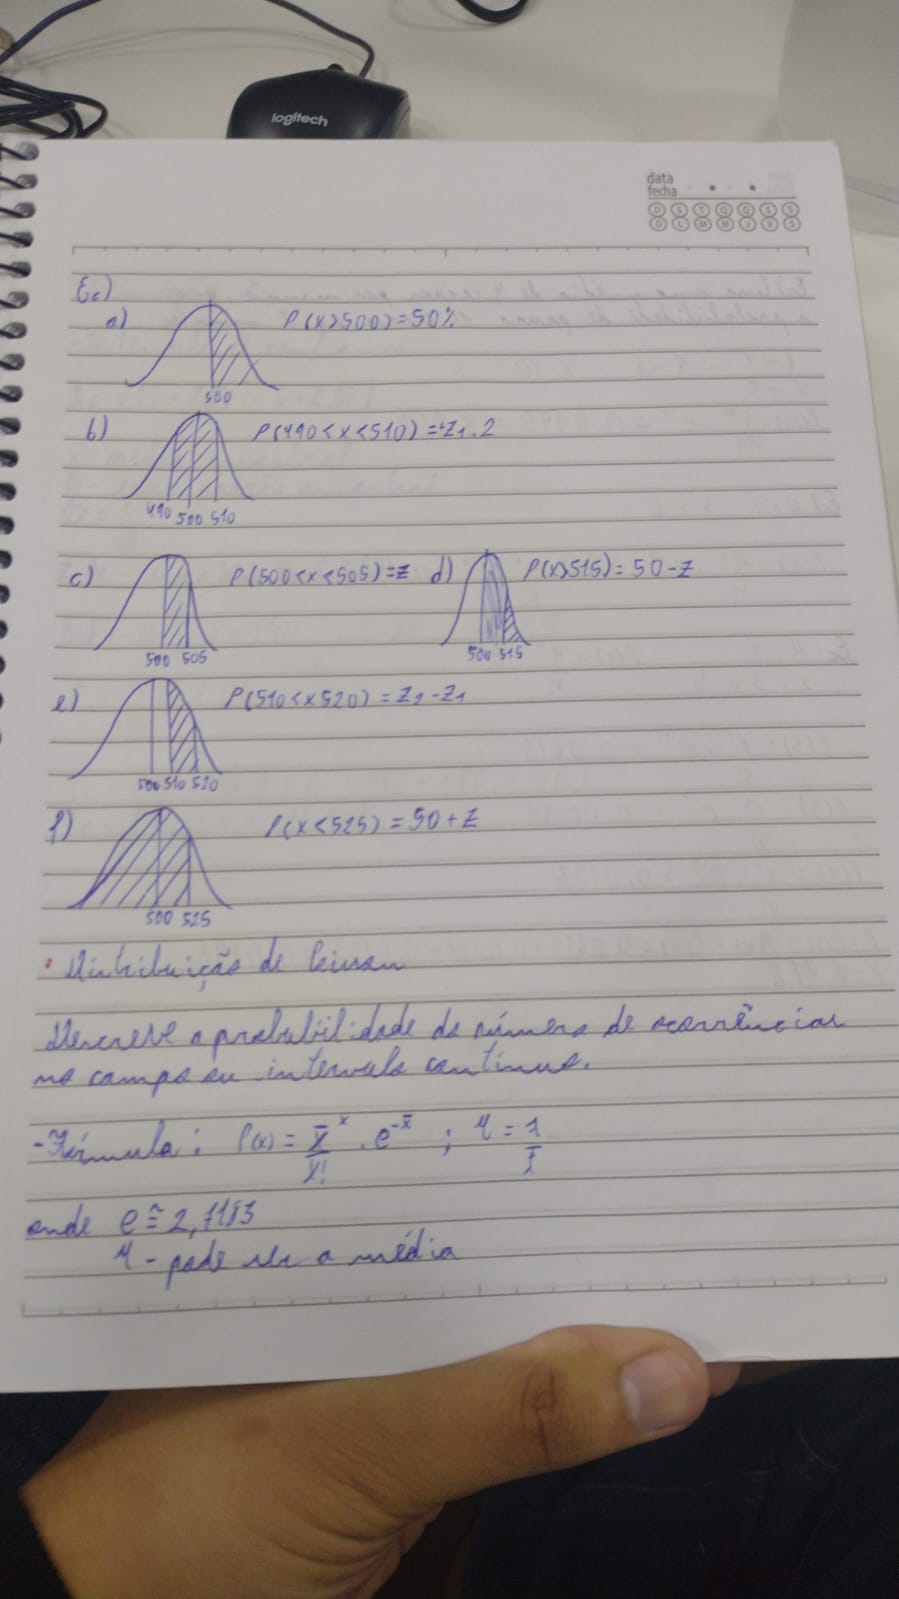 logitech
data
fecha
D S T Q Q S S
D L M M J V S
Ec)
a) P(x>500)=50%
500
b) P(490<x<510)=+Z1.2
490 500 510
c) P(500<x<505)=Z d) P(x>515)=50-Z
500 505 500 515
e) P(510<x520)=Z2-Z1
500 510 520
f) P(x<525)=50+Z
500 525
• Distribuição de
Descreve a probabilidade do número de ocorrências
no campo ou intervalo contínuo.
-Fórmula: P(x)= x̄^x/x! . e^-x̄ ; M = 1/
onde e≅2,7183
M - pode ser a média